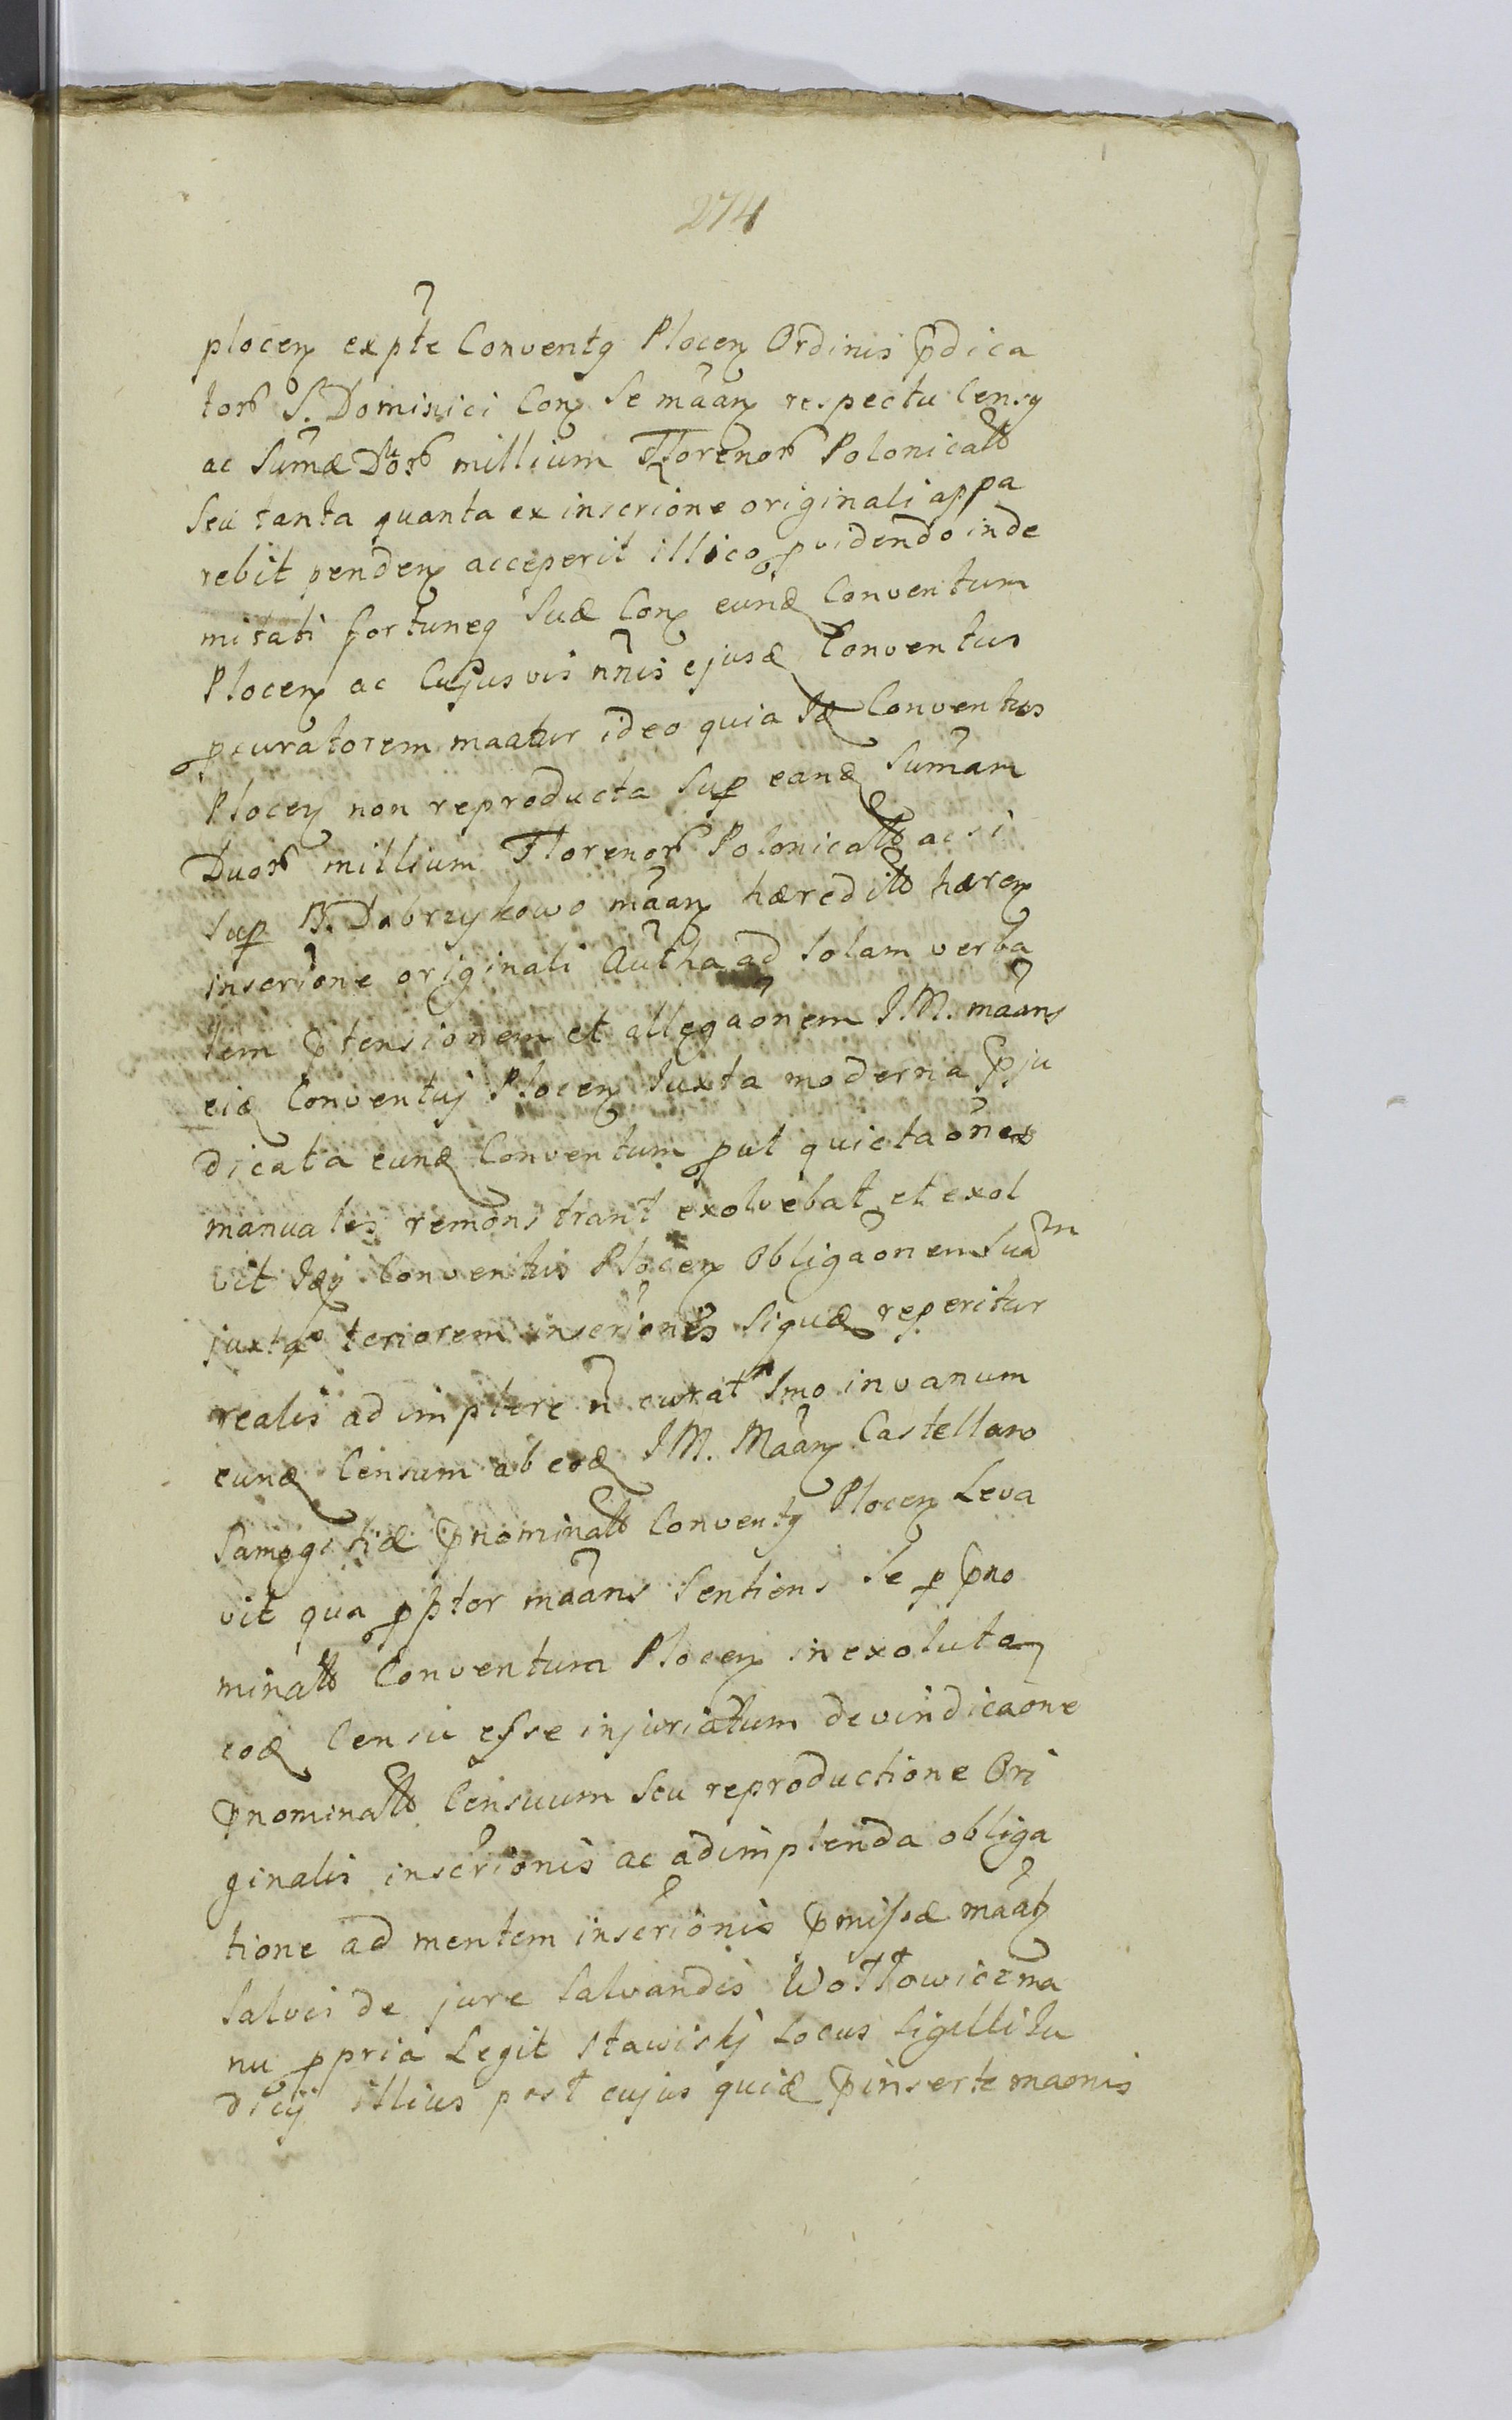 274
plocen expte Conventq Plocen Ordinis p̃dica
tor S. Dominici Con Se mãan respectu Censq
ac Sum̃æ Duor millium Florenor Polonical
Seu tanta quanta ex inscrione originali appa
rebit penden acceperit illico pvidendo inde
mitati fortuneq Suæ Con eund Conventum
Plocen ac Cujusvis nñis ejusd Conventus
pcuratorem maatur ideo quia Id Conventus
Plocen non reproducta Sup eand Sum̃am
Duor millium Florenor Polonical ac si
Sup B. Dobrzykowo mãan hæredit hæren
inscrione originali Autha ad Solam verba
lem p̃tensionem et allegaõnem J.M. mãans
eid Conventuj Plocen Juxta moderna p̃ju
dicata eund Conventum put quietaõnes
manuales remonstrant exolvebat et exol
vit Idq Conventus Plocen Obligaõnem Suam
juxta teriorem inscriones Siquæ reperitur
realis adimplere ñ curat Imo invanum
eund Censum ab eod J.M. Mãan Castellano
Samogitiæ p̃nominat Conventq Plocen Leva
vit qua pptor mãans Sentiens Se p p̃no
minat Conventum Plocen inexoluta
eod Censu esse injuriatum devindicaõne
p̃nominat Censuum Seu reproductione Ori
ginalis inscrionis ac adimplenda obliga
tione ad mentem inscrionis p̃missæ mãat
Salvis de jure Salvandis Wołłowicz ma
nu ppria Legit Stawiskj Locus Sigilli Ju
dicij illius post cujus quid p̃inserte maonis